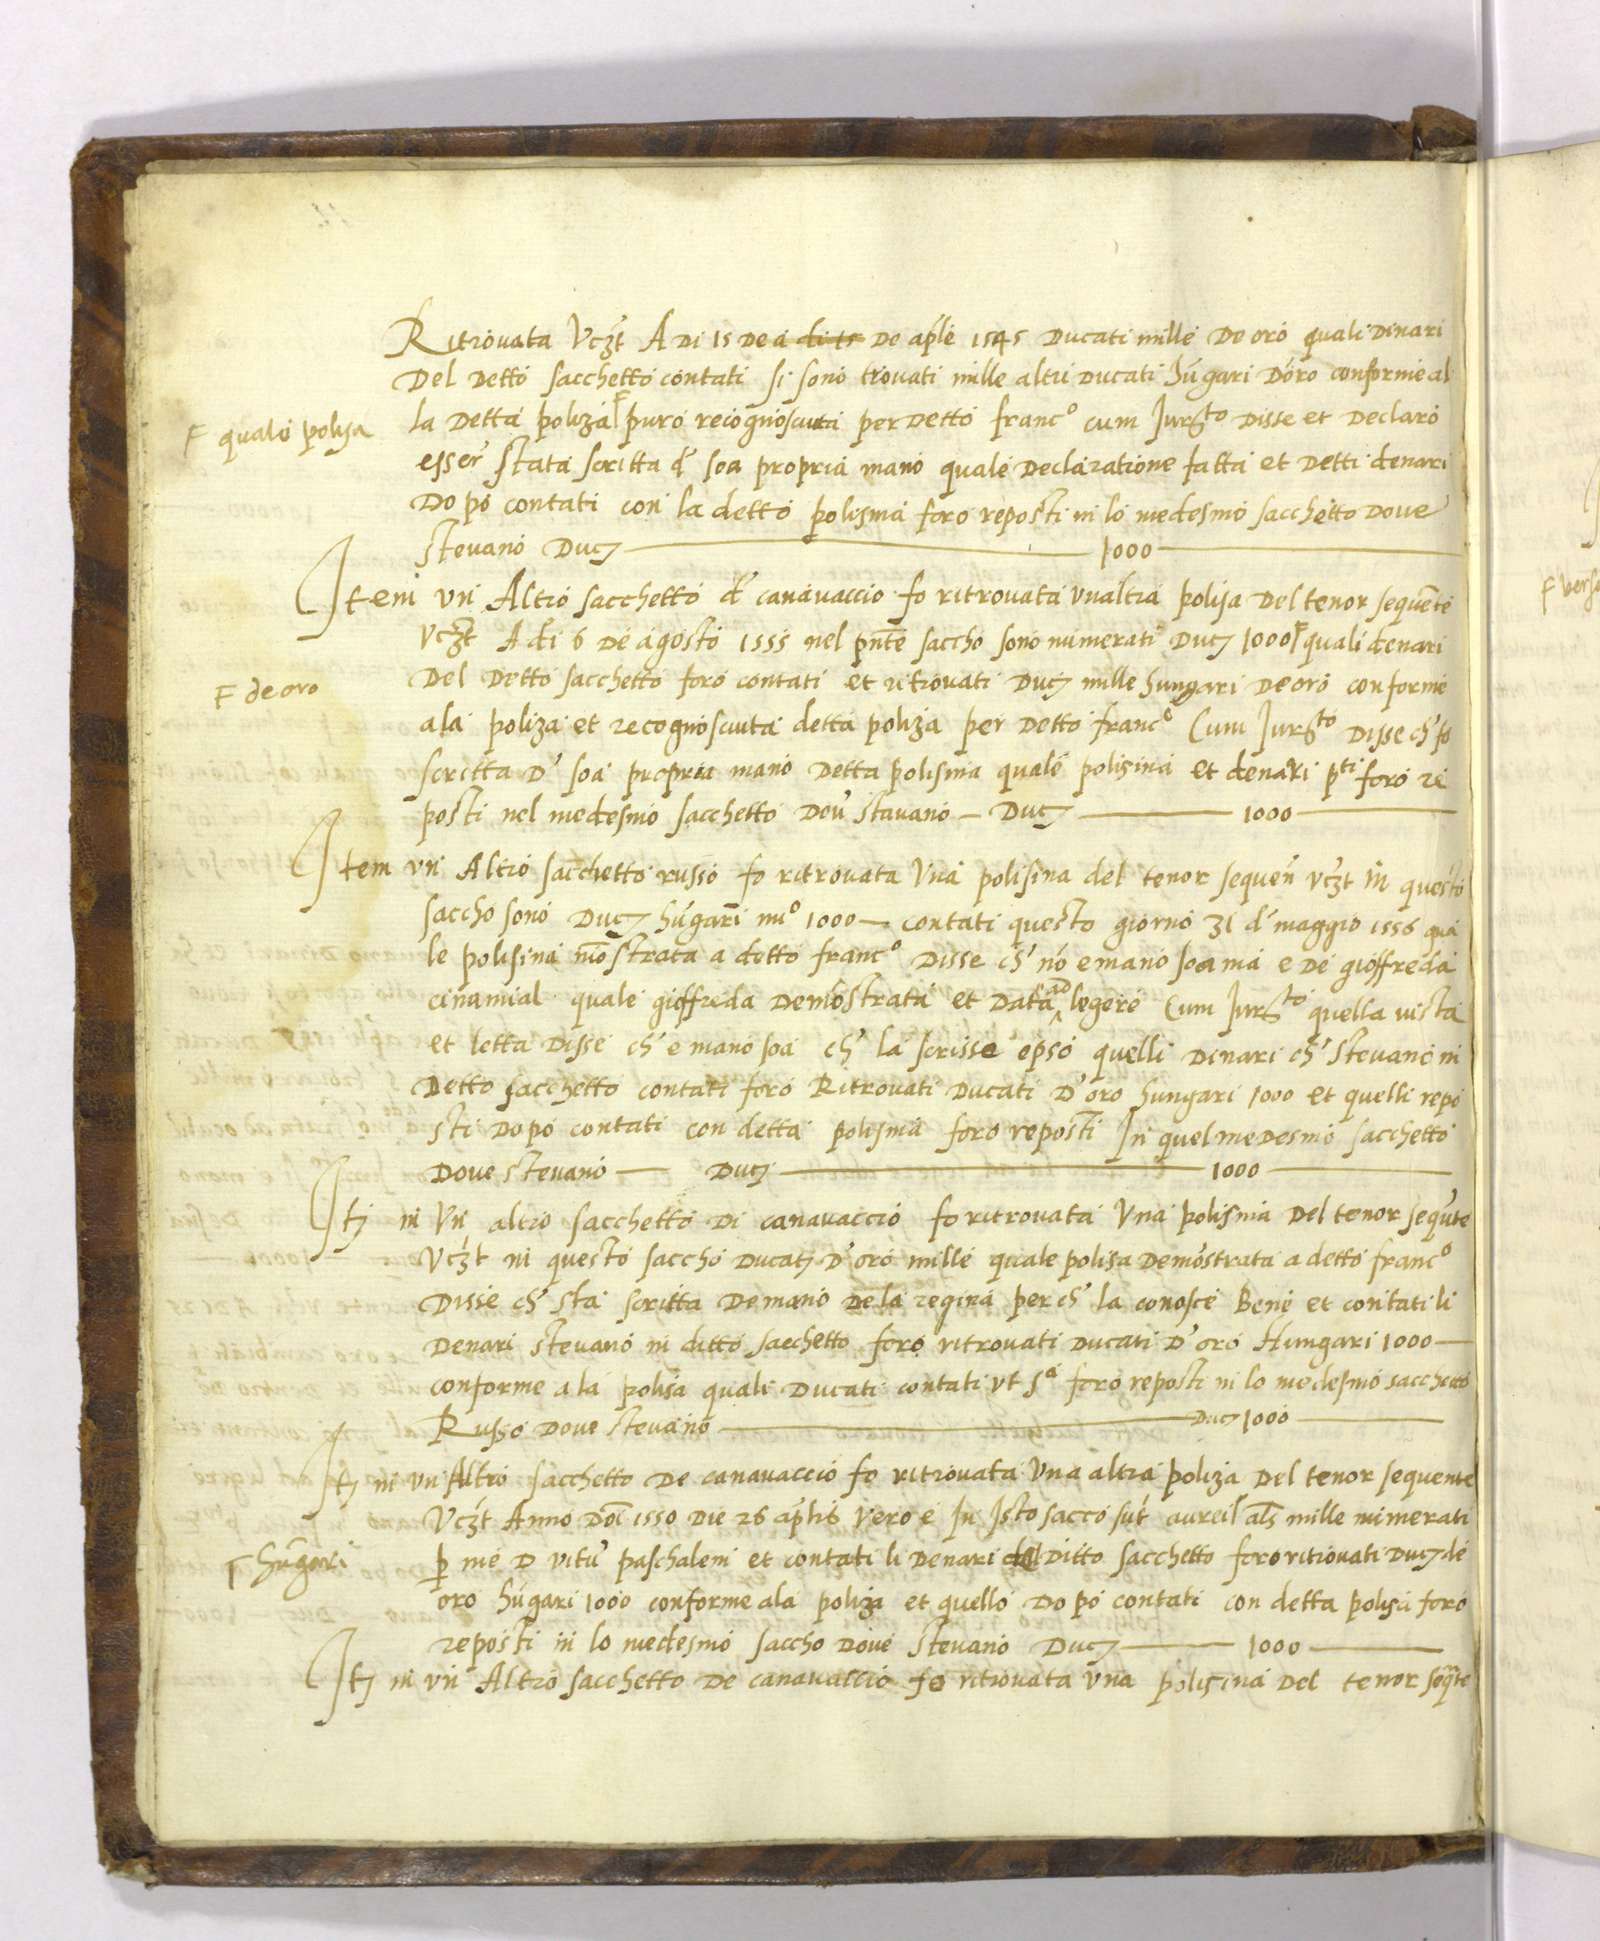 Ritrovata Vczt A di 15 de a di 15 de aple 1545 Ducati mille de oro quali denari
del detto sacchetto contati si sono trovati mille altri ducati hūgari d'oro conforme al
F quale polisa
la detta poliza F puro recognosciuta per detto franc.o cum Jur.to disse et declaro
esser stata scritta d' soa propria mano quale declaratione fatta et detti denari
dopo contati con la detto polisina foro reposti in lo medesmo sacchetto dove
stevano Duc. 1000
Item un Altro sacchetto d' canavaccio fo ritrovata unaltra polisa del tenor sequēte
Vczt A di 6 de agosto 1555 nel pnte saccho sono numerati Duc. 1000 F quali denari
F de oro
del detto sacchetto foro contati et ritrovati Duc. mille hungari de oro conforme
ala poliza et recognosciuta detta poliza per detto franc.o Cum Jur.to disse ch' fo
scritta d' soa propria mano detta polisina quale polisina et denari p.ti foro re
posti nel medesmo sacchetto dov' stavano Duc. 1000
Item un Altro sacchetto russo fo ritrovata una polisina del tenor sequen vczt In questo
saccho sono Duc. hūgari nu.o 1000 contati questo giorno 31 d' maggio 1556 qua
le polisina mostrata a detto franc.o disse ch' nō e mano soa ma e de gioffreda
cinamial quale gioffreda demōstrata et data ad legere Cum Jur.to quella vista
et letta disse ch' e mano soa ch' la scrisse epso quelli denari ch' stevano in
detto sacchetto contati foro Ritrovati Ducati d'oro hungari 1000 et quelli repo
sti dopo contati con detta polisina foro reposti In quel medesmo sacchetto
dove stevano Duc. 1000
It. in un altro sacchetto di canavaccio fo ritrovata Una polisina del tenor sequ'te
Vczt in questo saccho ducati d'oro mille quale polisa demōstrata a detto franc.o
disse ch' sta scritta de mano de la regina perch' la conosce bene et contati li
denari stevano in ditto sacchetto foro ritrovati ducati d'oro Hungari 1000
conforme a la polisa quali ducati contati ut s.a foro reposti in lo medesmo sacchetto
Russo dove stevano Duc. 1000
It. in un Altro sacchetto de canavaccio fo ritrovata Una altra poliza del tenor sequente
Vczt Anno Doī 1550 die 26 aplis vero e In Isto sacco sūt aurei F als mille numerati
F hūgari
p me D vitū paschalem et contati li denari del ditto sacchetto foro ritrovati Duc. de
oro hūgari 1000 conforme ala poliza et quello dopo contati con detta polisa foro
reposti in lo medesmo saccho dove stevano Duc. 1000
It. in un Altro sacchetto de canavaccio fo ritrovata una polisina del tenor seqte